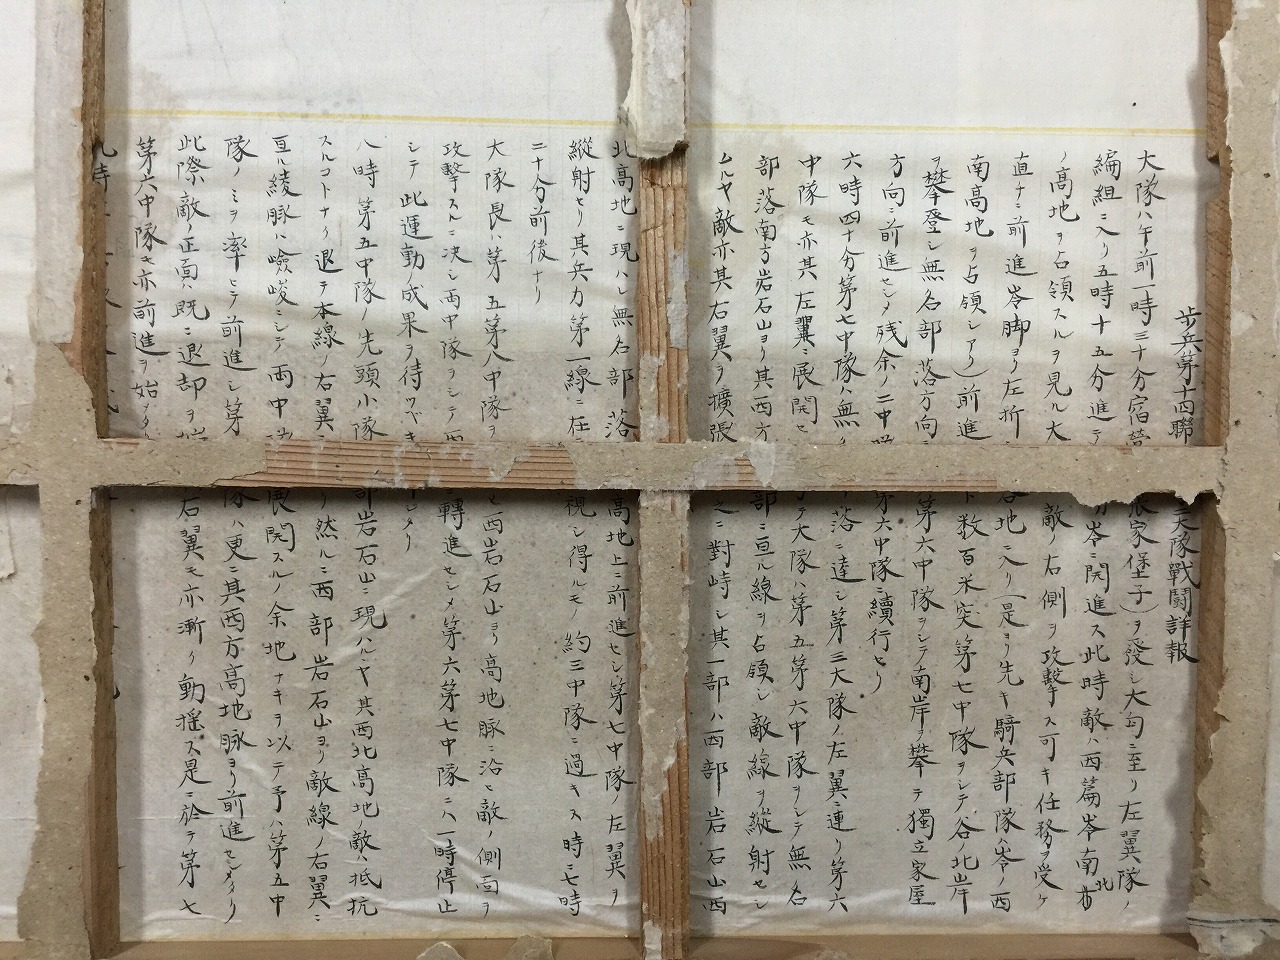 歩兵第十四聯 三大隊戰鬪詳報
大隊ハ午前一時三十分宿營 張家堡子)ヲ發シ大勾ニ至リ左翼隊ノ
編組ニ入リ五時十五分進テ 岺ニ開進ス此時敵ハ西篇岺南北
ノ高地ヲ占領スルヲ見ル大 敵ノ右側ヲ攻撃ス可キ任務ヲ受ケ
直チニ前進岺脚ヨリ左折シ 谷地ニ入リ(是ヨリ先キ騎兵部隊ハ岺ノ西
南高地ヲ占領シアリ)前進 数百米突第七中隊ヲシテ谷ノ北岸
ヲ攀登シ無名部落方向ニ 第六中隊ヲシテ南岸ヲ攀テ獨立家屋
方向ニ前進セシメ残余ノ二中隊 第六中隊ニ續行セリ
六時四十分第七中隊ハ無名 落ニ達シ第三大隊ノ左翼ニ連リ第六
中隊モ亦其左翼ニ展開セ テ大隊ハ第五第六中隊ヲシテ無名
部落南方岩石山ヨリ其西方 部ニ亘ル線ヲ占領シ敵線ヲ縱射セシ
ムルヤ敵亦其右翼ヲ擴張 之ニ對峙シ其一部ハ西部岩石山西
北高地ニ現ハレ無名部落 高地上ニ前進セシ第七中隊ノ左翼ヲ
縱射セリ其兵力第一線ニ在 視シ得ルモノ約三中隊ニ過キス時ニ七時
二十分前後ナリ
大隊長ハ第五第八中隊ヲ 西岩石山ヨリ高地脉ニ沿ヒ敵ノ側面ヲ
攻撃スルニ決シ両中隊ヲシテ西 ニ轉進セシメ第六第七中隊ニハ一時停止
シテ此運動成果ヲ待ツベキ シメタリ
八時第五中隊ノ先頭小隊 部岩石山ニ現ハルヤ其西北高地ノ敵ハ抵抗
スルコトナク退テ本線ノ右翼ニ リ然ルニ西部岩石山ヨリ敵線ノ右翼ニ
亘ル綾脉ハ嶮峻ニシテ両中隊 展開スルノ余地ナキヲ以テ予ハ第五中
隊ノミヲ率ヒテ前進シ第 隊ハ更ニ其西方高地脉ヨリ前進セシメタリ
此際敵ノ正面ハ既ニ退却ヲ 右翼モ亦漸ク動揺ス是ニ於テ第七
第六中隊モ亦前進ヲ始メタリ